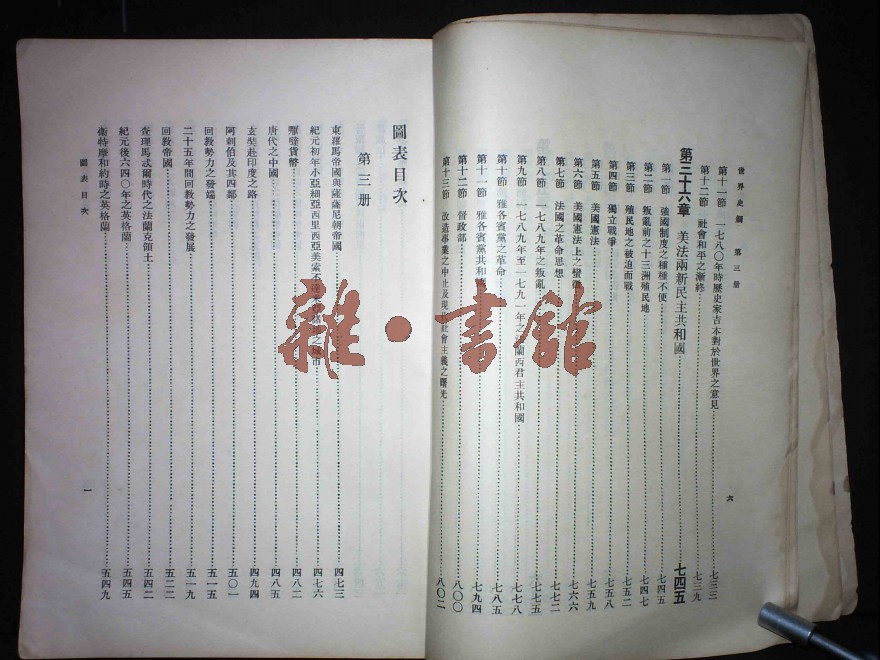 世界史綱　第三册
六
第十一節　一七八〇年時歷史家吉本對於世界之意見……七三三
第十二節　社會和平之漸終……七三九
第三十六章　美法兩新民主共和國……七四五
第一節　強國制度之種種不便……七四五
第二節　叛亂前之十三洲殖民地……七四七
第三節　殖民地之被迫而戰……七五二
第四節　獨立戰爭……七五九
第五節　美國憲法……七五九
第六節　美國憲法上之蠻徵……七六六
第七節　法國之革命思想……七七二
第八節　一七八九年之叛亂……七七五
第九節　一七八九年至一七九一年之法蘭西君主共和國……七七八
第十節　雅各賓黨之革命……七八五
第十一節　雅各賓黨共和……七九四
第十二節　督政部……八〇〇
第十三節　改造事業之中止及現代社會主義之曙光……八〇二
圖表目次
第三册
東羅馬帝國與薩薩尼朝帝國……四七三
紀元初年小亞細亞西里西亞美索不達米亞諸地之城市……四七六
嚈噠貨幣……四八二
唐代之中國……四八五
玄奘赴印度之路……四九四
阿剌伯及其四鄰……五〇一
回教勢力之發端……五一五
二十五年間回教勢力之發展……五一九
回教帝國……五二二
查理馬忒爾時代之法蘭克領土……五四二
紀元後六四〇年之英格蘭……五四五
衞特摩和約時之英格蘭……五四九
圖表目次
一
雜·書館